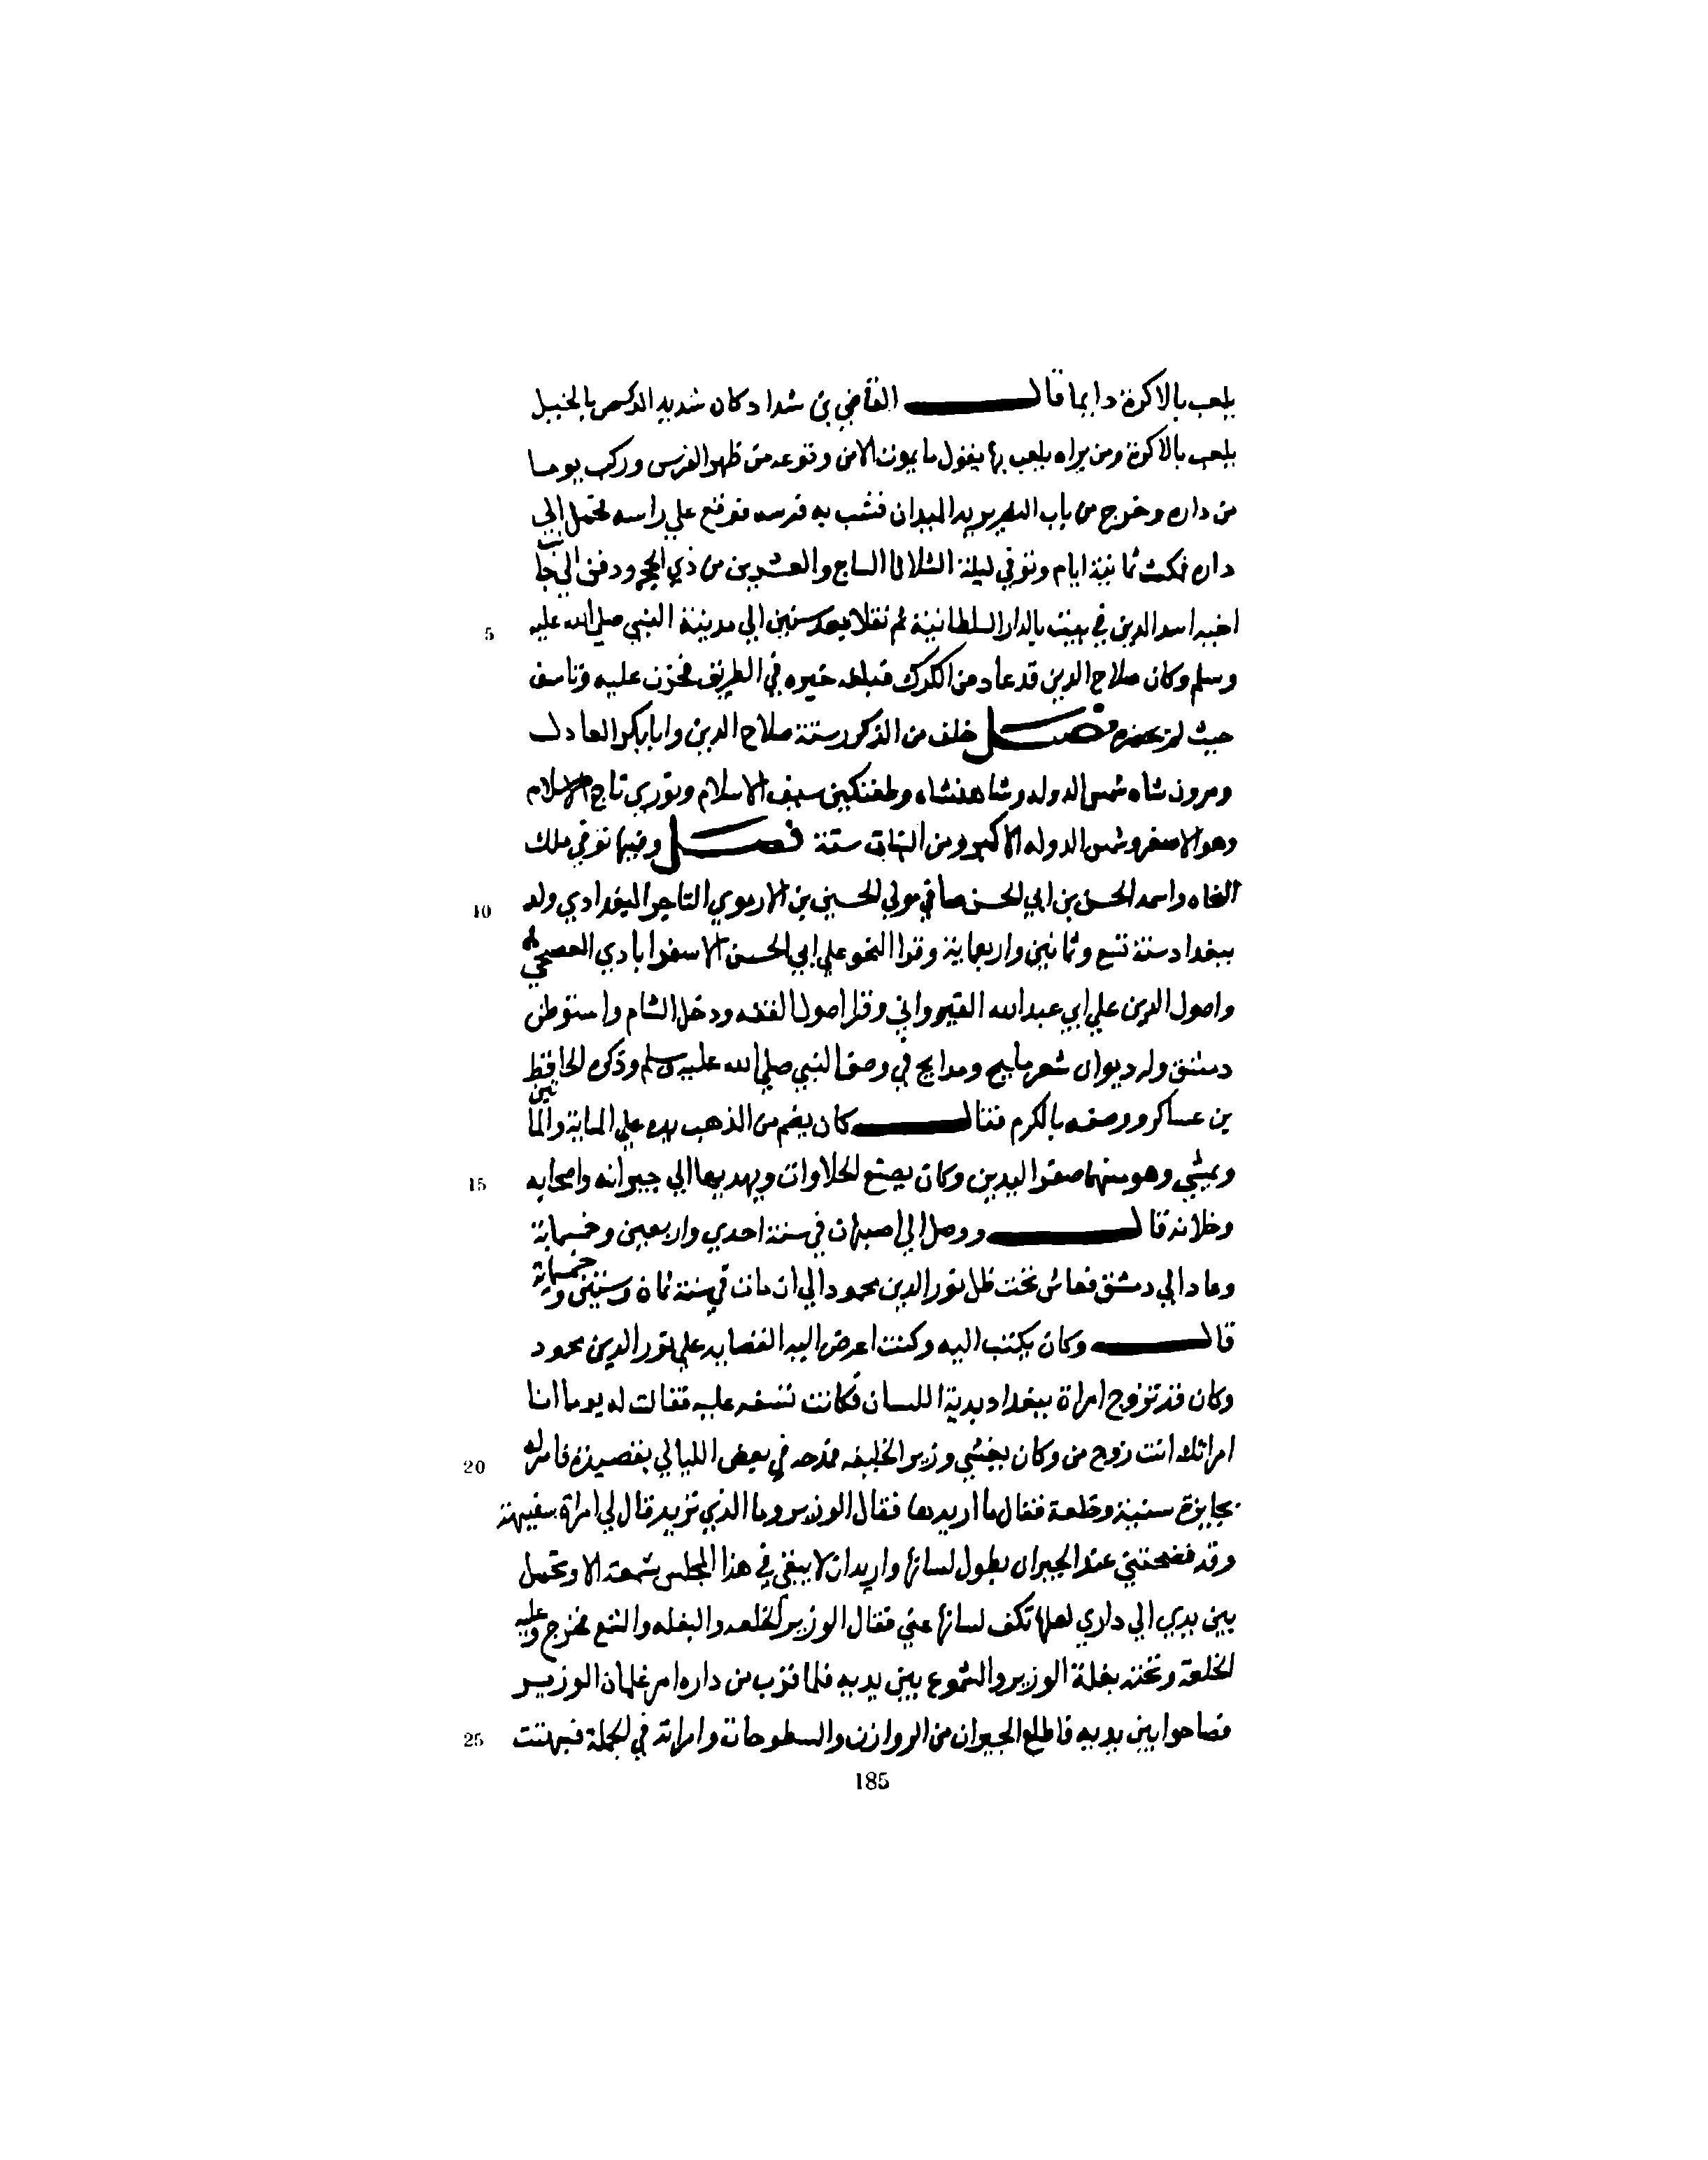 يلعب بالاكرة دايما قال القاضي بن شداد كان شديد الركض بالخيل
يلعب بالاكرة ومن يراه يلعب بها يقول ما يموت الا من وقوعه من ظهر الفرس وركب يوما
من داره وخرج من باب النصر يريد الميدان فشب به فرسه فوقع علي راسه فحمل الي
داره فمكث ثمانية ايام وتوفي ليلة الثلاثا السابع والعشرين من ذي الحجه ودفن الي جانب
5 اخيه اسد الدين في بيت بالدار السلطانية ثم نقلا بعد سنين الي مدينة النبي صلي الله عليه
وسلم وكان صلاح الدين قد عاد من الكرك فبلغه خبره في الطريق فحزن عليه وتاسف
حيث لم يحضره فصل خلف من الذكور ستة صلاح الدين وابا بكر العادل
وتورون شاه شمس الدوله وشاهنشاه وطغتكين سيف الاسلام وبوري تاج الاسلام
وهو الاصغر وشمس الدوله الاكبر ومن البنات ستة فصل وفيها توفي ملك
10 النحاه واسمه الحسن بن ابي الحسن صافي مولي الحسين بن الارموي التاجر البغدادي ولد
ببغداد سنة تسع وثمانين واربعماية وقرا النحو علي ابي الحسن الاسفراباذي الفصيحي
واصول الدين علي ابي عبدالله القيرواني وقرا اصول الفقه ودخل الشام واستوطن
دمشق وله ديوان شعر مليح ومدايح في وصف النبي صلي الله عليه وسلم وذكره الحافظ
بن عساكر ووصفه بالكرم فقال كان يضم من الذهب يده علي الماية والماتين
15 ويمشي وهو منهما صفر اليدين وكان يصنع الحلاوات ويهديها الي جيرانه واصحابه
وخلانه قال ووصل الي اصبهان في سنة احدي واربعين وخمسماية
وعاد الي دمشق فعاش تحت ظل نور الدين محمود الي ان مات في سنة ثمان وستين وخمسماية
قال وكان يكتب اليه وكنت اعرض اليه القصايد علي نور الدين محمود
وكان قد تزوج امراة ببغداد بدية اللسان فكانت تسفه عليه فقالت له يوما انا
20 امراتك انت زوج من وكان يغشي وزير الخليفه فمدحه في بعض الليالي بقصيدة فامر له
بجايزة سنية وخلعة فقال ما اريدها فقال الوزير وما الذي تريد قال لي امراة سفيهة
وقد فضحتني عند الجيران بطول لسانها واريد ان لا يبقي في هذا المجلس شمعة الا وتحمل
بين يدي الي داري لعلها تكف لسانها عني فقال الوزير الخلعه والبغله والشمع فخرج وعليه
الخلعة وتحته بغلة الوزير والشموع بين يديه فلما قرب من داره امر غلمان الوزير
25 فصاحوا بين يديه فاطلع الجيران من الروازن والسطوحات وامراته في الجملة فبهتت
185